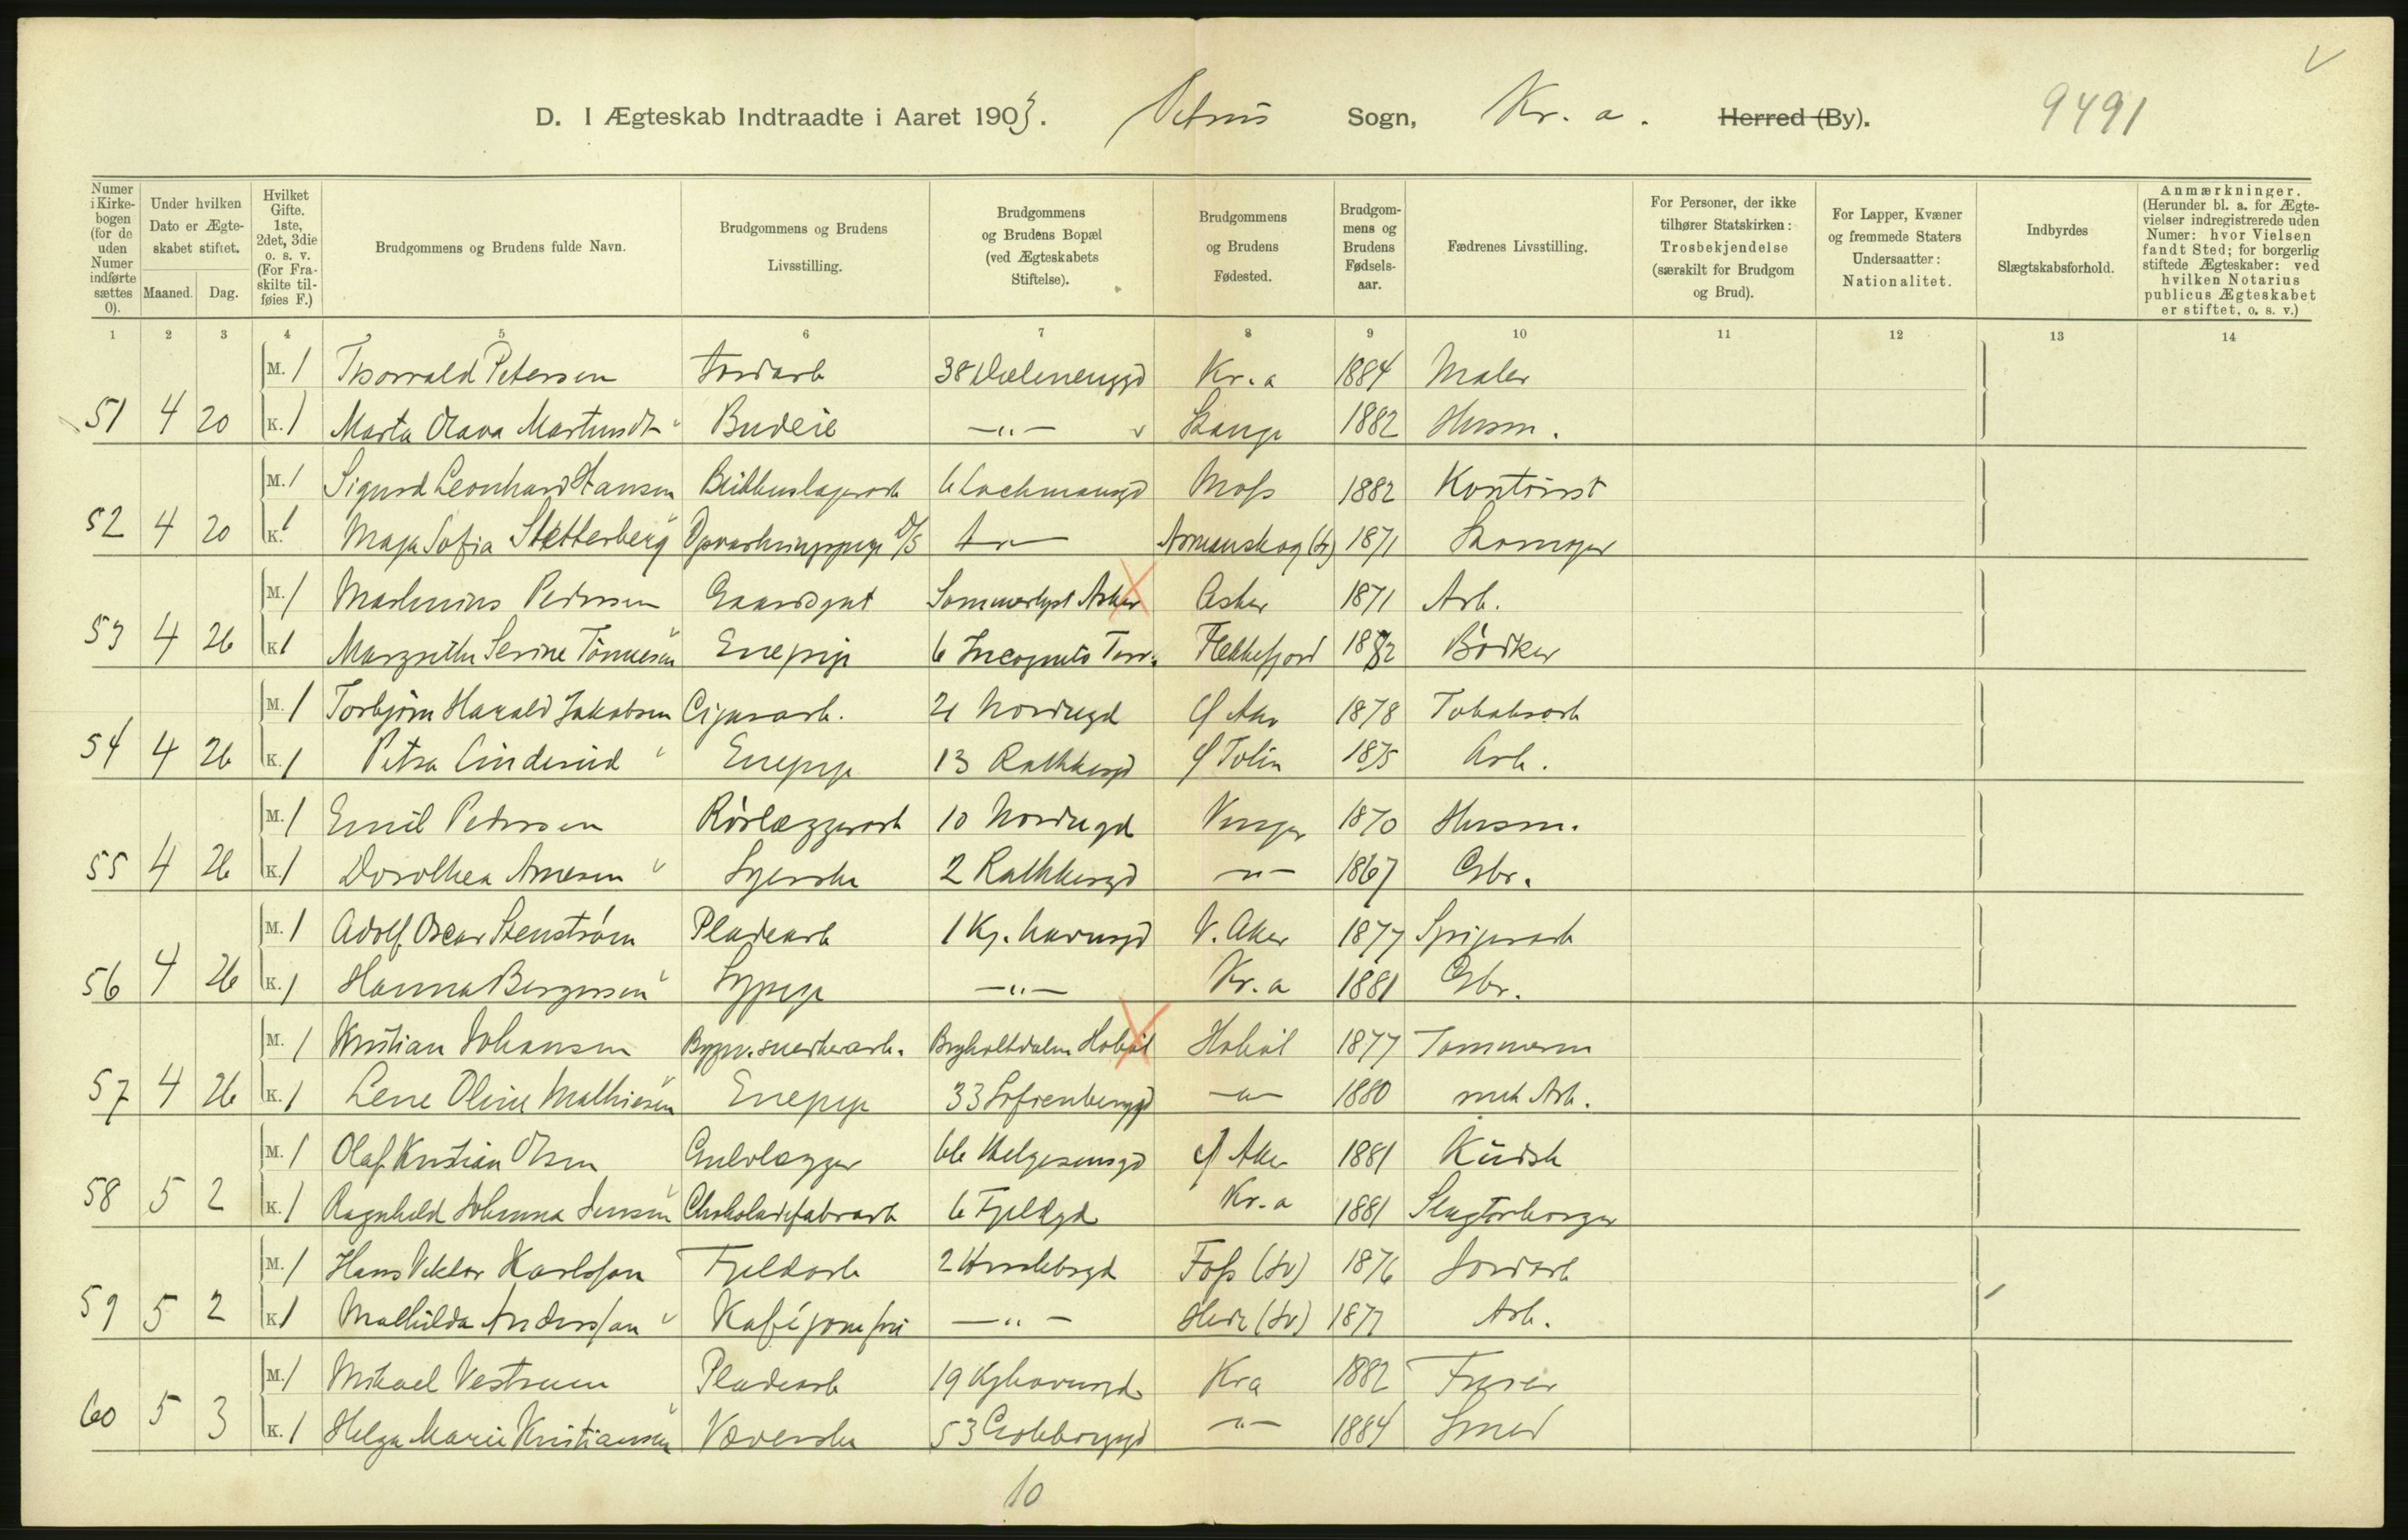 D. I Ægteskab Indtraadte i Aaret 1903. Petrus Sogn, Kr. a. Herred (By). 9491
Numer i Kirke-bogen (for de uden Numer indførte sættes 0).
Under hvilken Dato er Ægte-skabet stiftet.
Maaned. Dag.
Hvilket Gifte. 1ste, 2det, 3die o. s. v. (For Fra-skilte til-føies F.)
Brudgommens og Brudens fulde Navn.
Brudgommens og Brudens Livsstilling.
Brudgommens og Brudens Bopæl (ved Ægteskabets Stiftelse).
Brudgommens og Brudens Fødested.
Brudgom-mens og Brudens Fødsels-aar.
Fædrenes Livsstilling.
For Personer, der ikke tilhører Statskirken: Trosbekjendelse (særskilt for Brudgom og Brud).
For Lapper, Kvæner og fremmede Staters Undersaatter: Nationalitet.
Indbyrdes Slægtskabsforhold.
Anmærkninger. (Herunder bl. a. for Ægte-vielser indregistrerede uden Numer: hvor Vielsen fandt Sted; for borgerlig stiftede Ægteskaber: ved hvilken Notarius publicus Ægteskabet er stiftet, o. s. v.)
1 2 3 4 5 6 7 8 9 10 11 12 13 14
M. 1 Thorvald Petersen Jordarb 38 Dælenenggd Kr. a 1884 Maler
51 4 20 K. 1 Marta Olava Budeie —„— Stange 1882 Husm.
M. 1 Sigurd Leonhard Hansen Blikkenslagerarb 6 Lachmansgd Moss 1882 Kontorist
52 4 20 K. 1 Maja Sofia Stetterberg 1871 Skomager
M. 1 Martinius Pedersen Gaardsgut Sommerlyst Asker Asker 1871 Arb.
53 4 26 K. 1 Margrethe Serine Tönnesen Enepige 6 Incognito Terr. Flekkefjord 1882 Bödker
M. 1 Torbjörn Harald Jakobsen Cigararb. 21 Nordregd Ø Aker 1878 Tobaksarb
54 4 26 K. 1 Petra Linderud Enepige 13 Rathkesgd 1875 Arb.
M. 1 Emil Pedersen Rörlæggerarb 10 Nordregd Vinger 1870 Husm.
55 4 26 K. 1 Dorothea Arnesen Syerske 2 Rathkesgd —„— 1867 Gbr.
M. 1 Adolf Oscar Stenström Pladearb 1 Kjbhavnsgd V. Aker 1877 Spigerarb
56 4 26 K. 1 Hanna Bergersen Sypige —„— Kr. a 1881 Gbr.
M. 1 Kristian Johansen Bygn.snerkerarb. Hoböl Hoböl 1877 Tömmerm
57 4 26 K. 1 Lene Oline Mathiesen Enepige 33 Sofienberggd —„— 1880 mek Arb.
M. 1 Olaf Kristian Olsen Gulvlægger 66 Helgesensgd Ø Aker 1881 Kudsk
58 5 2 K. 1 Ragnhild Johanna Jensen Chokoladefabrarb 6 Fjeldgd Kr. a 1881 Slagterborger
M. 1 Hans Viktor Karlsson Fjeldarb Foss (Sv) 1876 Jordarb
59 5 2 K. 1 Mathilda Andersson Kaféjomfru —„— Hede (Sv) 1877 Arb.
M. 1 Mikael Vestrum Pladearb 19 Kjbhavnsgd Kra 1882 Frisör
60 5 3 K. 1 Helga Marie Kristiansen Væverske 53 Gøteborggd —„— 1884 Smed
10